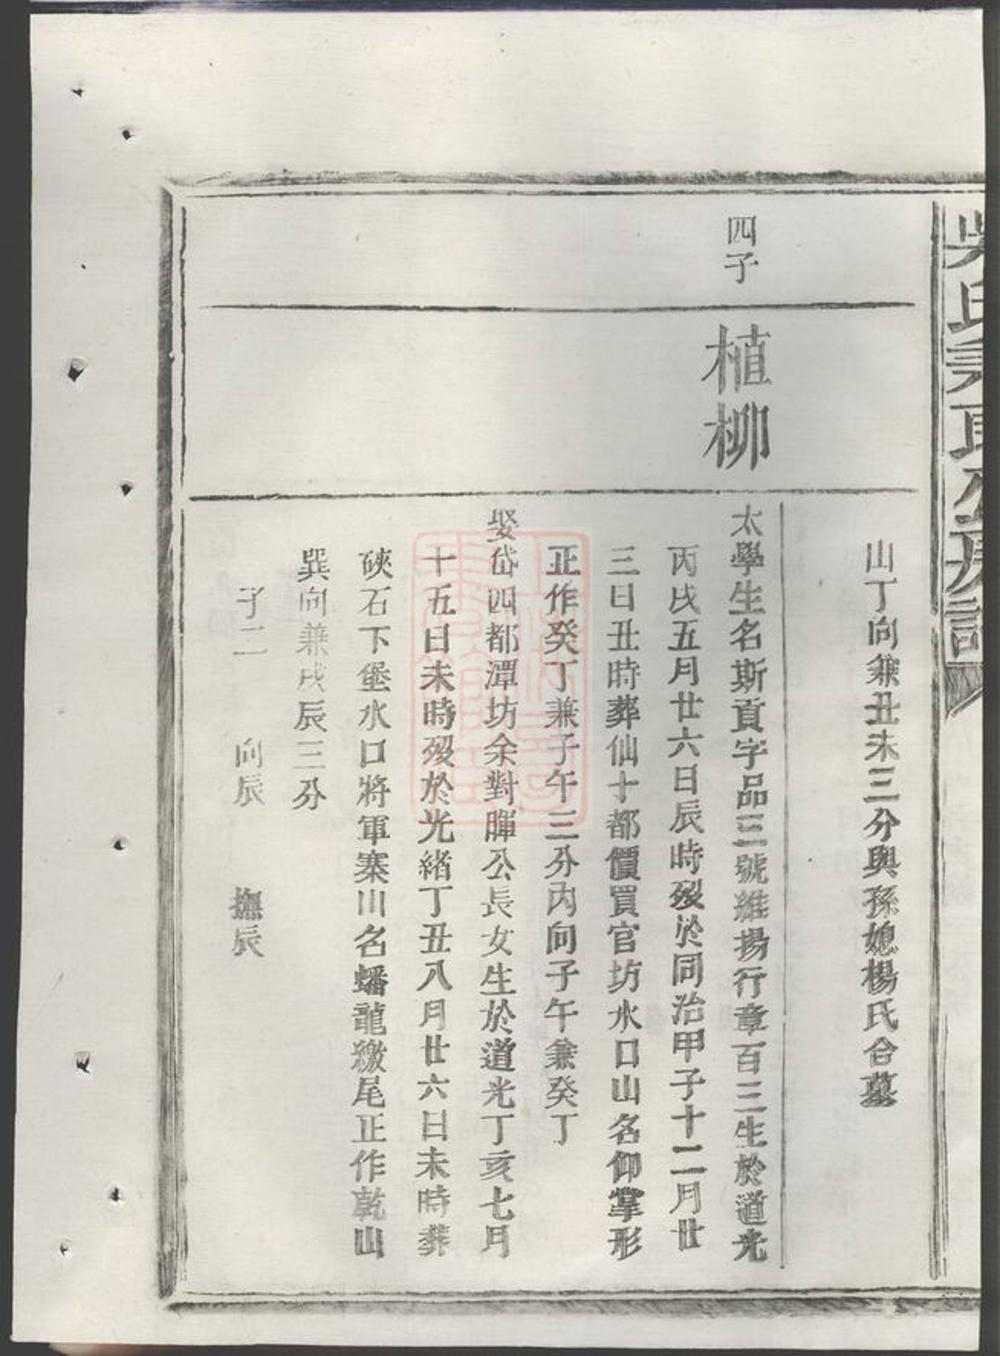 吳氏
公房譜
山丁向兼丑未三分與孫媳楊氏合墓
四子
植柳
太學生名斯貢字品三號維揚行章百三生於道光
丙戌五月廿六日辰時歿於同治甲子十二月廿
三日丑時葬仙十都價買官坊水口山名仰掌形
正作癸丁兼子午三分內向子午兼癸丁
娶岱四都潭坊余對暉公長女生於道光丁亥七月
十五日未時歿於光緒丁丑八月廿六日未時葬
硤石下堡水口將軍寨山名蟠龍繳尾正作乾山
巽向兼戌辰三分
子二　向辰　撫辰